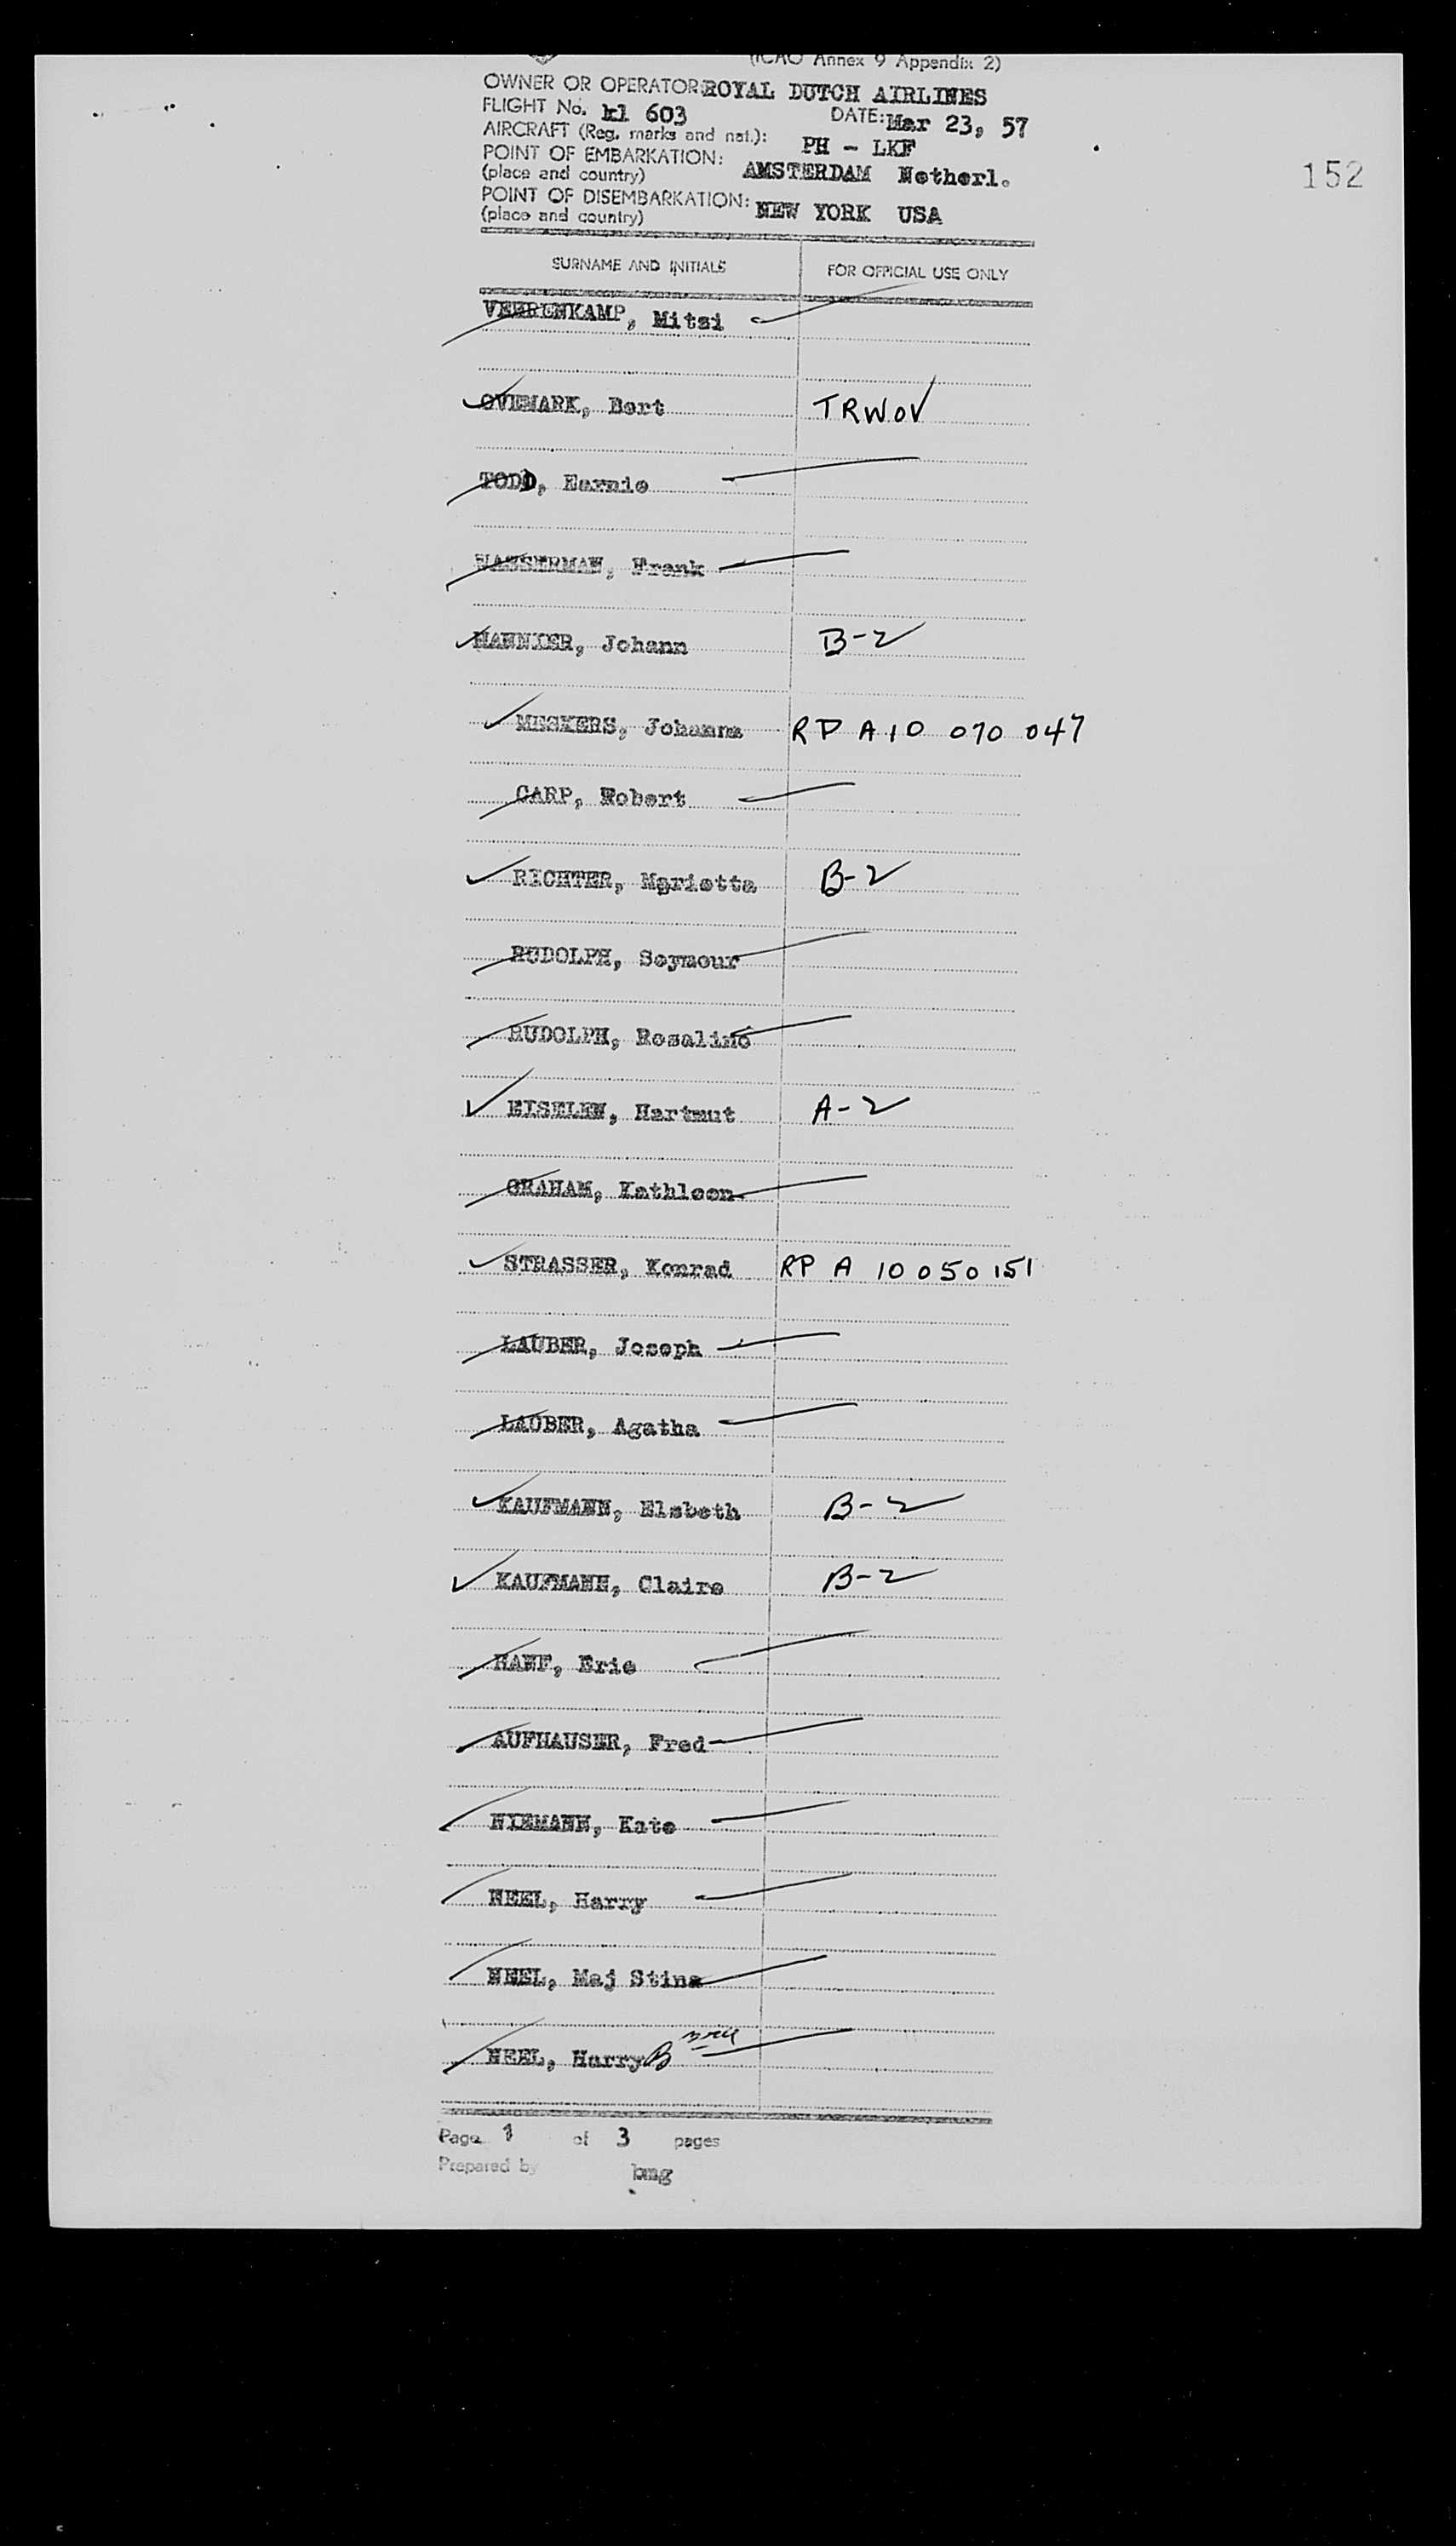 (ICAO Annex 9 Appendix 2)
OWNER OR OPERATOR: ROYAL DUTCH AIRLINES
FLIGHT No. kl 603 DATE: Mar 23, 57
AIRCRAFT (Reg. marks and nat.): PH - LKF
POINT OF EMBARKATION: AMSTERDAM Netherl.
(place and country)
152
POINT OF DISEMBARKATION: NEW YORK USA
(place and country)
SURNAME AND INITIALS FOR OFFICIAL USE ONLY
Mitzi
OVEMARK, Bert TRWOV
TODD, Earnie
WASSERMAN, Frank
Johann B-2
MESKERS, Johanna RP A10 070 047
CARP, Robert
RICHTER, Marietta B-2
RUDOLPH, Seymour
RUDOLPH, Rosalind
EISELEN, Hartmut A-2
GRAHAM, Kathleen
STRASSER, Konrad RP A 10 050 151
LAUBER, Joseph
LAUBER, Agatha
KAUFMANN, Elsbeth B-2
KAUFMANN, Claire B-2
HANF, Eric
AUFHAUSER, Fred
NIEMANN, Kate
NEEL, Harry
NEEL, Maj Stina
NEEL, Harry B
Page 1 of 3 pages
Prepared by bmg